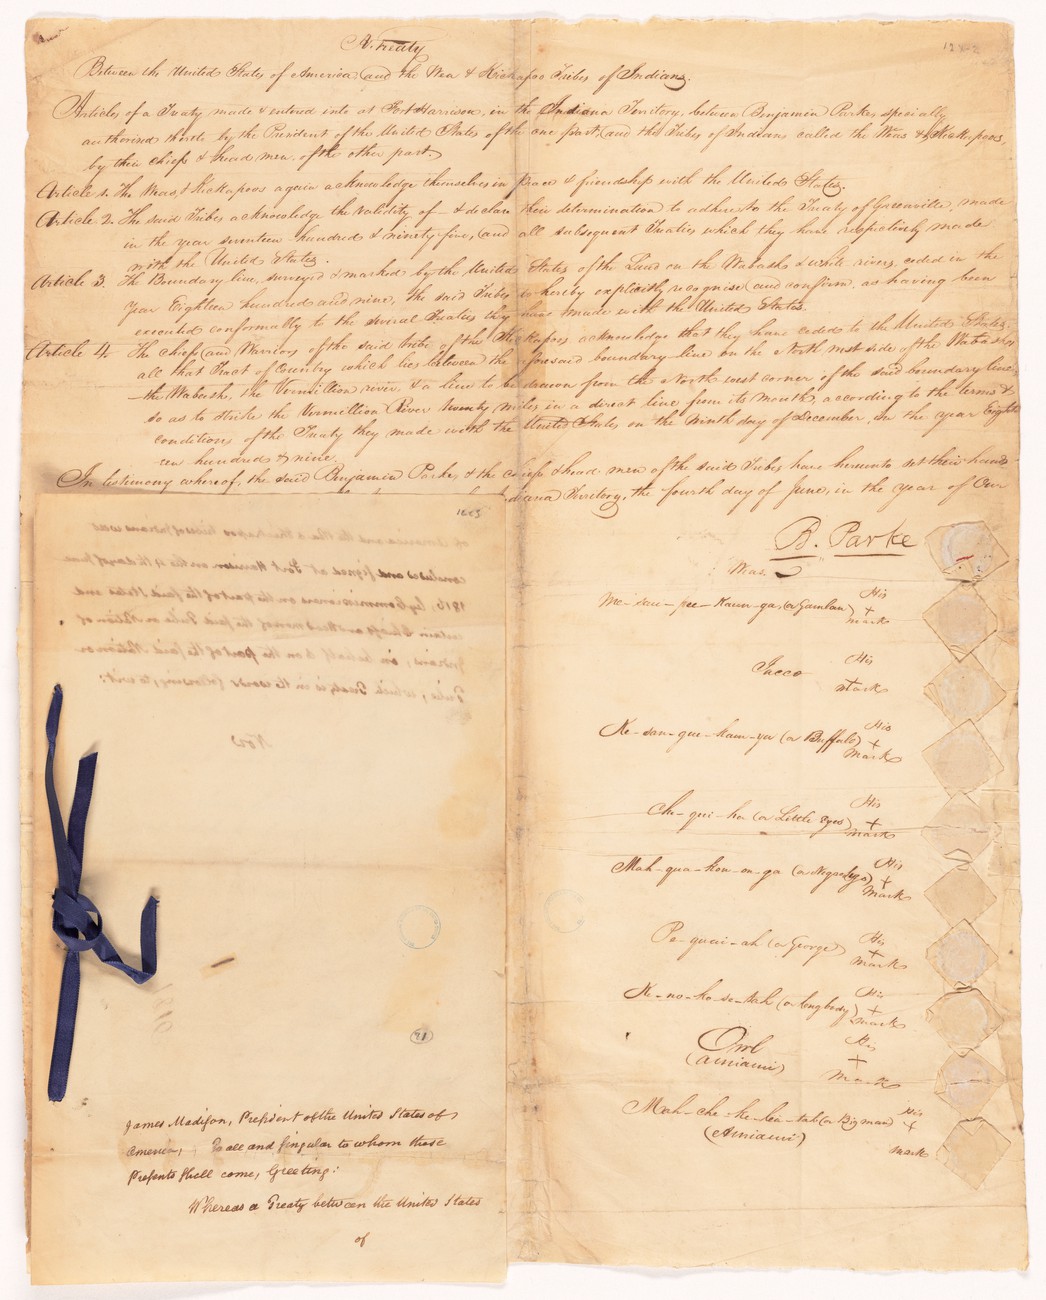 A Treaty
Between the United States of America, and the Wea & Kickapoo Tribes of Indians.
Articles of a Treaty made & entered into at Fort Harrison, in the Indiana Territory, between Benjamin Parke, specially
authorised thereto by the President of the United States of the one part, and the Tribes of Indians called the Weas & Kickapoos,
by their chiefs & head men, of the other part.
Article 1. The Weas & Kickapoos again acknowledge themselves in peace & friendship with the United States.
Article 2. The said Tribes acknowledge the validity of & declare their determination to adhere to the Treaty of Greenville, made
in the year seventeen hundred & ninety five, and all subsequent Treaties which they have respectively made
with the United States.
Article 3. The Boundary line, surveyed & marked by the United States of the Land on the Wabash & white rivers, ceded in the
Year Eighteen hundred and nine, the said Tribes do hereby explicitly recognise and confirm, as having been
executed conformably to the several Treaties they have made with the United States.
Article 4 The chiefs and Warriors of the said tribe of the Kickapoos acknowledge that they have ceded to the United States
all that Tract of Country which lies between the aforesaid boundary line on the North west side of the Wabash,
the Wabash, the Vermillion river, & a line to be drawn from the North west corner of the said boundary line,
so as to strike the Vermillion River twenty miles in a direct line from its mouth, according to the terms &
conditions of the Treaty they made with the United States on the Ninth day of December, in the year Eight
een hundred & nine.
In testimony whereof, the said Benjamin Parke, & the chiefs & head men of the said Tribes have hereunto set their hands
Indiana Territory, the fourth day of June, in the year of Our
B. Parke
Weas.
His
Me-sau-pee-kaun-ga, (or Gamlan) +
mark
Jacco His
mark
Ke-san-gue-kam-ya (or Buffalo) His
+
mark
Che-qui-ha (or Little Eyes) His
+
mark
Mah-qua-kon-on-ga (or Negrolegs) His
+
mark
Pe-quai-ah (or George) His
+
mark
Ke-no-ho-se-tah (or Longbody) His
+
mark
Owl His
(a Miami) +
mark
Mah-che-ke-le-tah (or Bigman) His
(a Miami) +
mark
James Madison, President of the United States of
America, To all and singular to whom these
Presents shall come, Greeting:
Whereas a Treaty between the United States
of